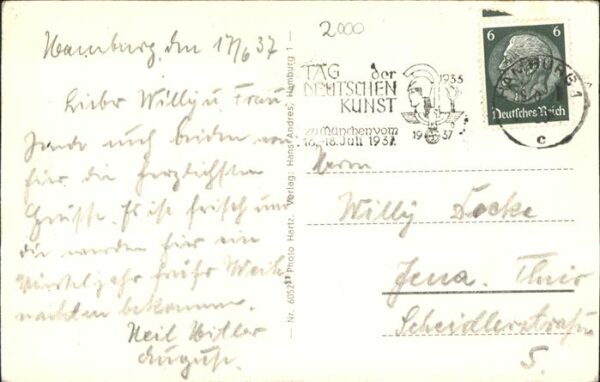 2000
Hamburg, den 17/6 37
Liebe Willy u. Frau
Sende euch beiden von
hier die herzlichsten
Grüsse. Es ist frisch und
wir werden für ein
Vierteljahr früher Weih-
nachten bekommen.
Heil Hitler
August.
Nr. 6052 Photo Hartz. Verlag: Hans Andres, Hamburg 1
TAG der
DEUTSCHEN
KUNST
zu München vom
16.-18. Juli 1937.
1933
1937
HAMBURG 1
c
6 6
Deutsches Reich
Herrn
Willy
Jena. Thür
Scheidlerstraße
5.